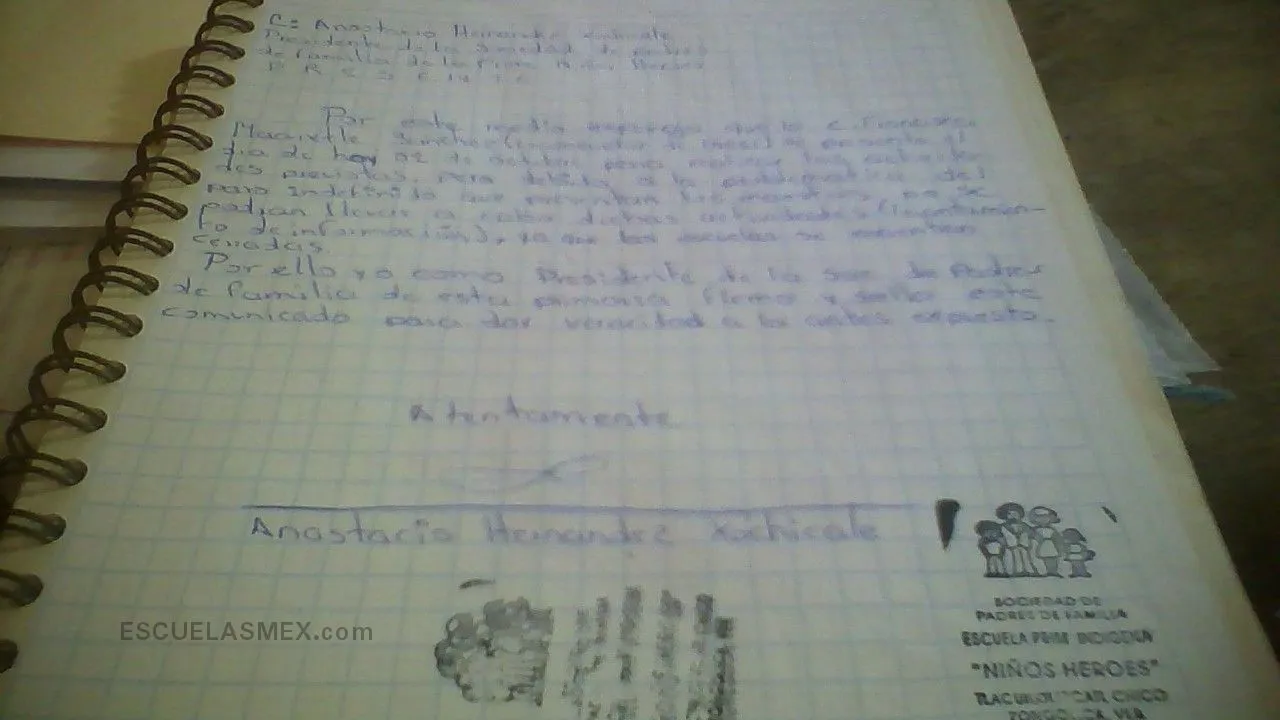 C: Anastacio Hernandez Xochicale
Presidente de la Sociedad de padres
de Familia de la Prim
P R E S E N T E
Por este medio que la C. Francisca
Maquixtle Sanchez se presento el
dia de hoy 02 de octubre para realizar las activida-
des previstas, pero debido a la problematica del
paro indefinido que presentan los maestros, no se
podran llevar a cabo dichas actividades
to de información), ya que las escuelas se encuentran
cerradas.
Por ello yo como Presidente de la Soc. de Padres
de Familia de esta primaria firmo y sello este
comunicado para dar veracidad a lo antes expuesto.
Atentamente
Anastacio Hernandez Xochicale
ESCUELASMEX.com
SOCIEDAD DE
PADRES DE FAMILIA
ESCUELA PRIM INDIGENA
"NIÑOS HEROES"
CHICO
VER